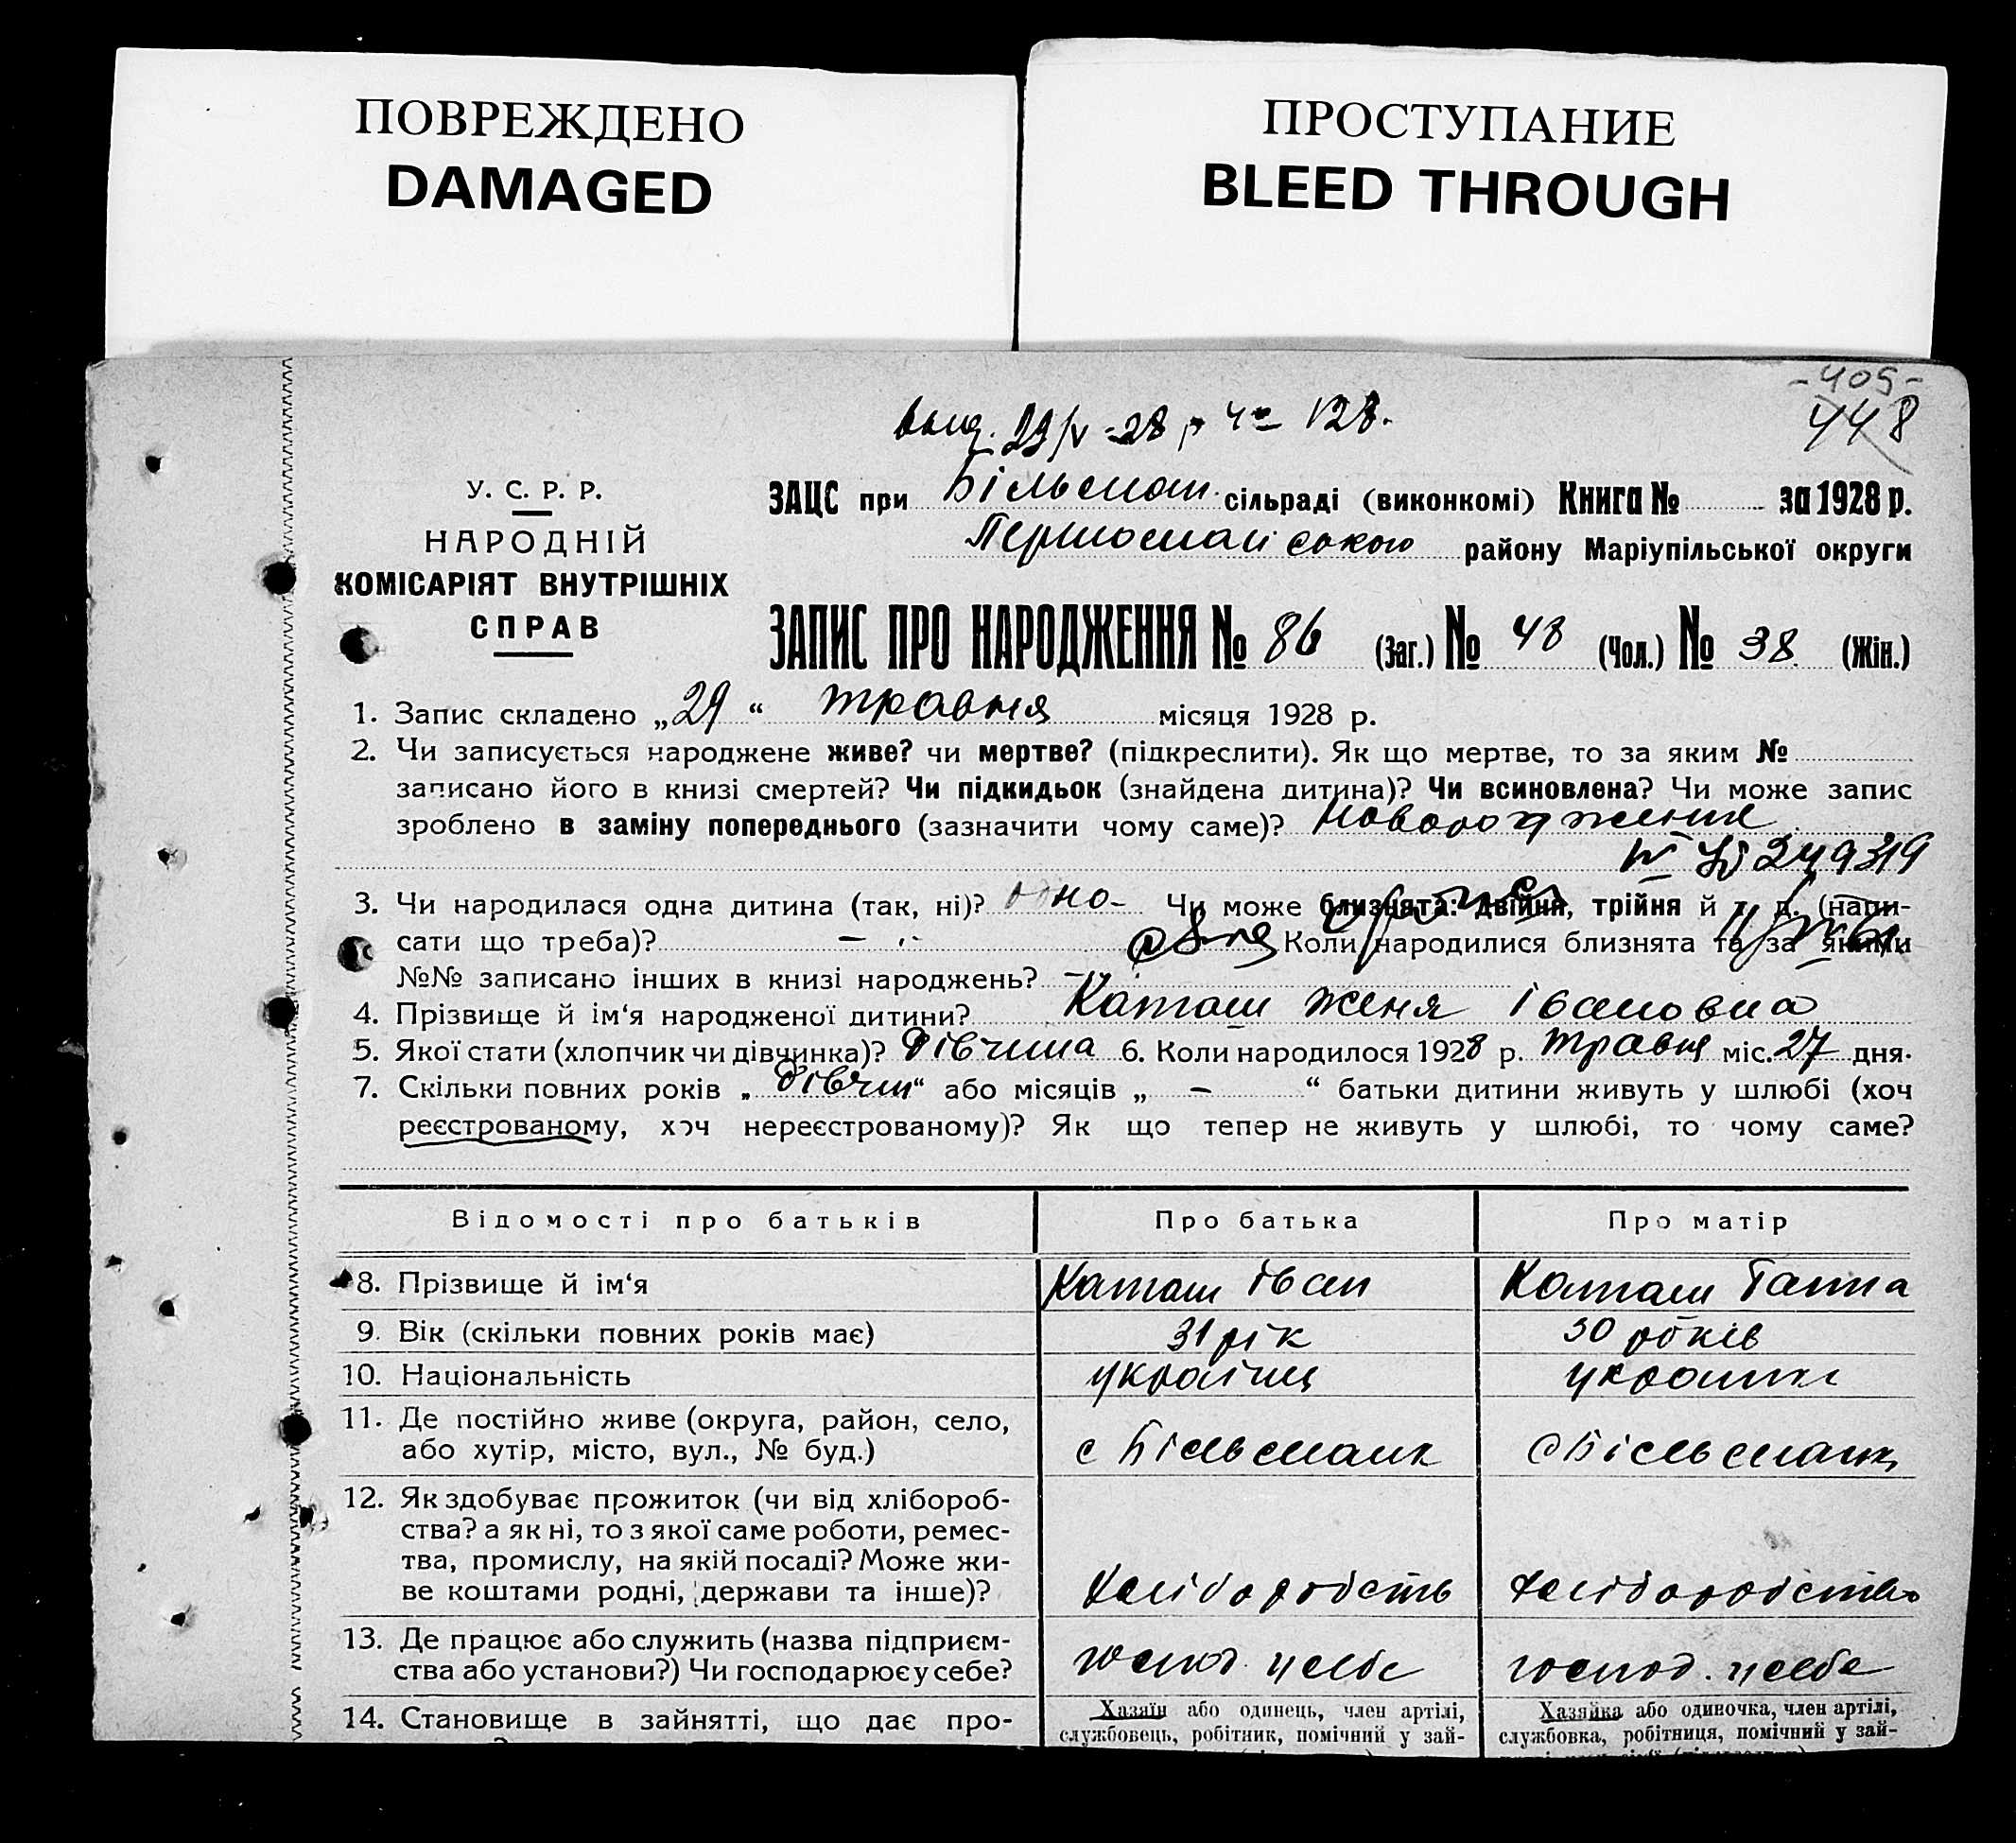 ПОВРЕЖДЕНО
DAMAGED
ПРОСТУПАНИЕ
BLEED THROUGH
-405-
448
выд. 29/V-28 р 128.
У. С. Р. Р.
НАРОДНІЙ
КОМІСАРІЯТ ВНУТРІШНІХ
СПРАВ
ЗАЦС при Більман. сільраді (виконкомі) Книга № за 1928 р.
Першомайського району Маріупільської округи
ЗАПИС ПРО НАРОДЖЕННЯ № 86 (Заг.) № 48 (Чол.) № 38 (Жін.)
1. Запис складено „29“ травня місяця 1928 р.
2. Чи записується народжене живе? чи мертве? (підкреслити). Як що мертве, то за яким №
записано його в книзі смертей? Чи підкидьок (знайдена дитина)? Чи всиновлена? Чи може запис
зроблено в заміну попереднього (зазначити чому саме)?
249319
3. Чи народилася одна дитина (так, ні)? одно- Чи може близнята: двійня, трійня й т. д. (напи-
сати що треба)? Коли народилися близнята та за якими
№№ записано інших в книзі народжень? -
4. Прізвище й ім‘я народженої дитини? Каташ Женя Івановна
5. Якої стати (хлопчик чи дівчинка)? Дівчина 6. Коли народилось 1928 р. травня міс. 27 дня.
7. Скільки повних років „ “ або місяців „ - “ батьки дитини живуть у шлюбі (хоч
реєстрованому, хоч нереєстрованому)? Як що тепер не живуть у шлюбі, то чому саме?
Відомості про батьків Про батька Про матір
8. Прізвище й ім‘я Каташ Іван Каташ Ганна
9. Вік (скільки повних років має) 31 рік 30 років
10. Національність українц українк
11. Де постійно живе (округа, район, село,
або хутір, місто, вул., № буд.) с Більманк с Більманк
12. Як здобуває прожиток (чи від хлібороб-
ства? а як ні, то з якої саме роботи, ремес-
тва, промислу, на якій посаді? Може жи-
ве коштами родні, держави та інше)? хліборобств хліборобство
13. Де працює або служить (назва підприєм-
ства або установи?) Чи господарює у себе? господ. у себе господ. у себе
14. Становище в зайнятті, що дає про- Хазяїн або одинець, член артілі, Хазяйка або одиночка, член артілі,
службовець, робітник, помічний у зай- службовка, робітниця, помічний у зай-